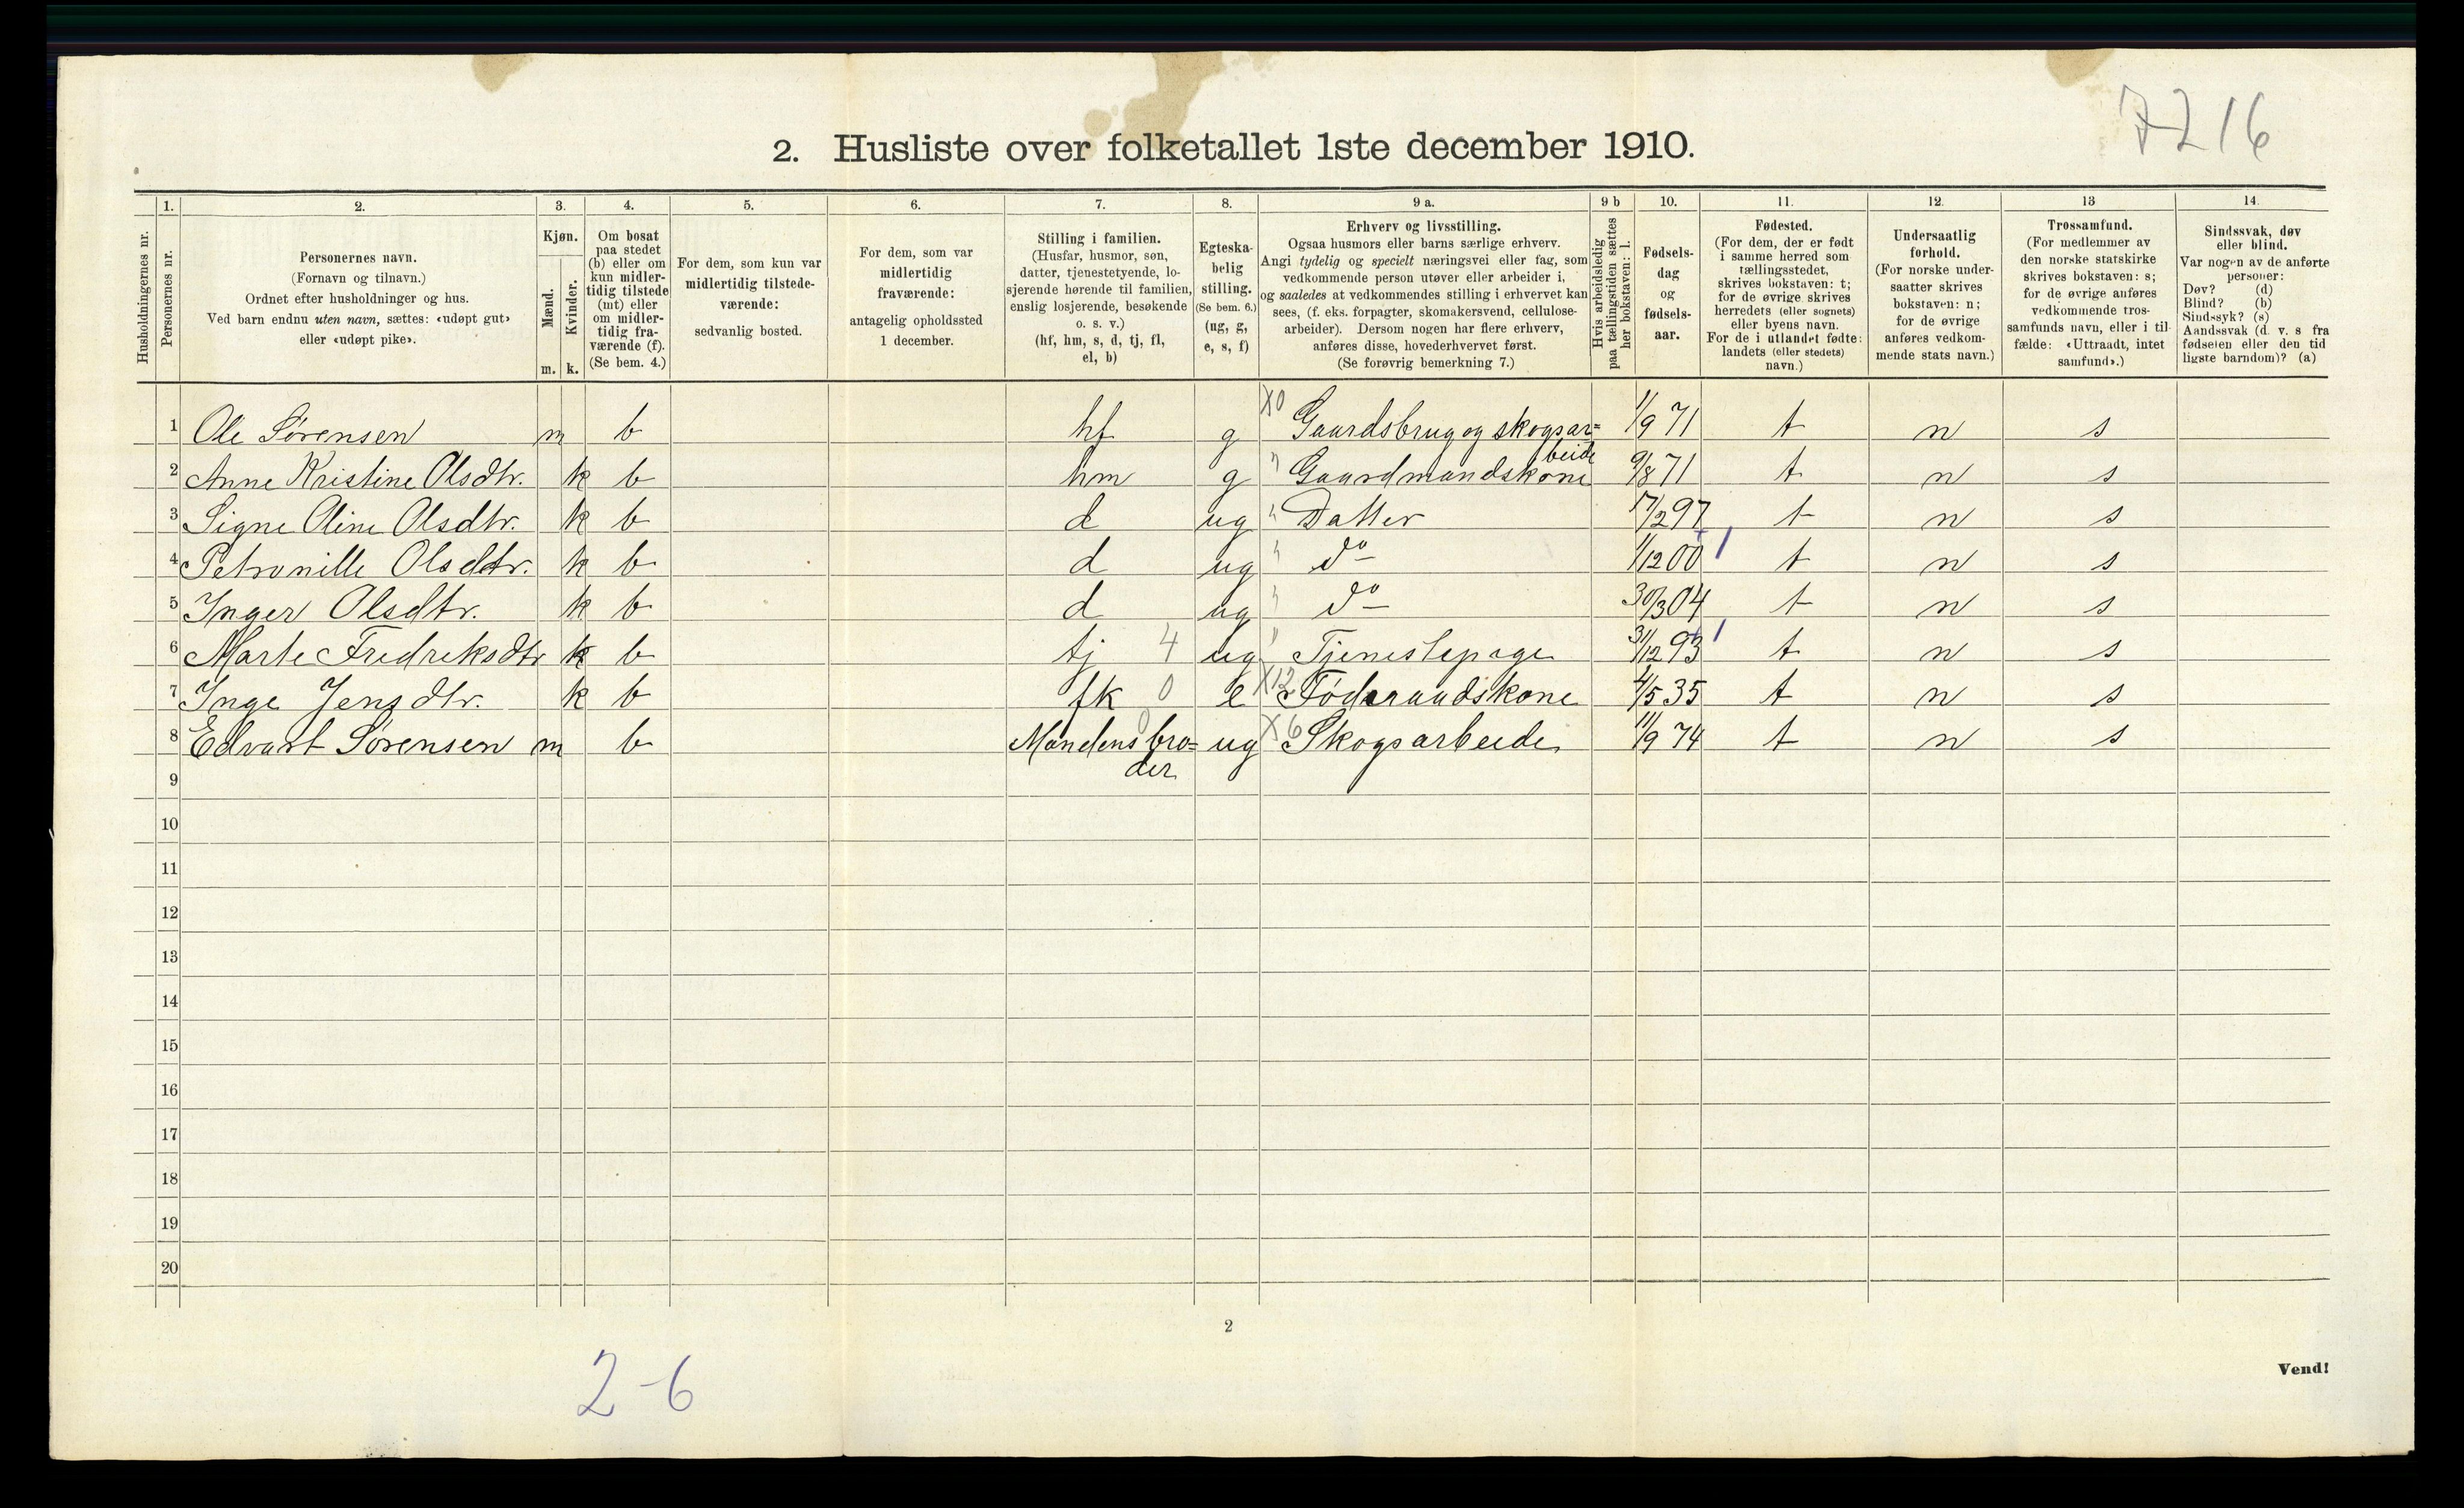 7216
2. Husliste over folketallet 1ste december 1910.
1. 2. 3. 4. 5. 6. 7. 8. 9 a. 9 b 10. 11. 12. 13 14.
Husholdningernes nr.
Personernes nr.
Personernes navn.
(Fornavn og tilnavn.)
Ordnet efter husholdninger og hus.
Ved barn endnu uten navn, sættes: «udøpt gut»
eller «udøpt pike».
Kjøn.
Mænd.
Kvinder.
m. k.
Om bosat
paa stedet
(b) eller om
kun midler-
tidig tilstede
(mt) eller
om midler-
tidig fra-
værende (f).
(Se bem. 4.)
For dem, som kun var
midlertidig tilstede-
værende:
sedvanlig bosted.
For dem, som var
midlertidig
fraværende:
antagelig opholdssted
1 december.
Stilling i familien.
(Husfar, husmor, søn,
datter, tjenestetyende, lo-
sjerende hørende til familien,
enslig losjerende, besøkende
o. s. v.)
(hf, hm, s, d, tj, fl,
el, b)
Egteska-
belig
stilling.
(Se bem. 6.)
(ug, g,
e, s, f)
Erhverv og livsstilling.
Ogsaa husmors eller barns særlige erhverv.
Angi tydelig og specielt næringsvei eller fag, som
vedkommende person utøver eller arbeider i,
og saaledes at vedkommendes stilling i erhvervet kan
sees, (f. eks. forpagter, skomakersvend, cellulose-
arbeider). Dersom nogen har flere erhverv,
anføres disse, hovederhvervet først.
(Se forøvrig bemerkning 7.)
Hvis arbeidsledig
paa tællingstiden sættes
her bokstaven: l.
Fødsels-
dag
og
fødsels-
aar.
Fødested.
(For dem, der er født
i samme herred som
tællingsstedet,
skrives bokstaven: t;
for de øvrige skrives
herredets (eller sognets)
eller byens navn.
For de i utlandet fødte:
landets (eller stedets)
navn.)
Undersaatlig
forhold.
(For norske under-
saatter skrives
bokstaven: n;
for de øvrige
anføres vedkom-
mende stats navn.)
Trossamfund.
(For medlemmer av
den norske statskirke
skrives bokstaven: s;
for de øvrige anføres
vedkommende tros-
samfunds navn, eller i til-
fælde: «Uttraadt, intet
samfund».)
Sindssvak, døv
eller blind.
Var nogen av de anførte
personer:
Døv? (d)
Blind? (b)
Sindssyk? (s)
Aandssvak (d. v. s. fra
fødselen eller den tid-
ligste barndom)? (a)
1 Ole Sørensen m b hf g X0 Gaardsbrug og skogsar= 1/9 71 t n s
beide
2 Anne Kristine Olsdtr. k b hm g " Gaardmandskone 9/8 71 t n s
3 Signe Oline Olsdtr. k b d ug " Datter 17/2 97 t n s
4 Petronille Olsdtr. k b d ug " do 1/12 00 1 t n s
5 Inger Olsdtr. k b d ug " do 30/3 04 t n s
6 Marte Fredriksdtr k b tj 4 ug " Tjenestepige 31/12 93 1 t n s
7 Inge Jensdtr. k b fk 0 e X12 Føderaadskone 4/5 35 t n s
8 Edvart Sørensen m b Mandens bro= 0 ug X6 Skogsarbeide 11/9 74 t n s
der
9
10
11
12
13
14
15
16
17
18
19
20
2
Vend!
2-6